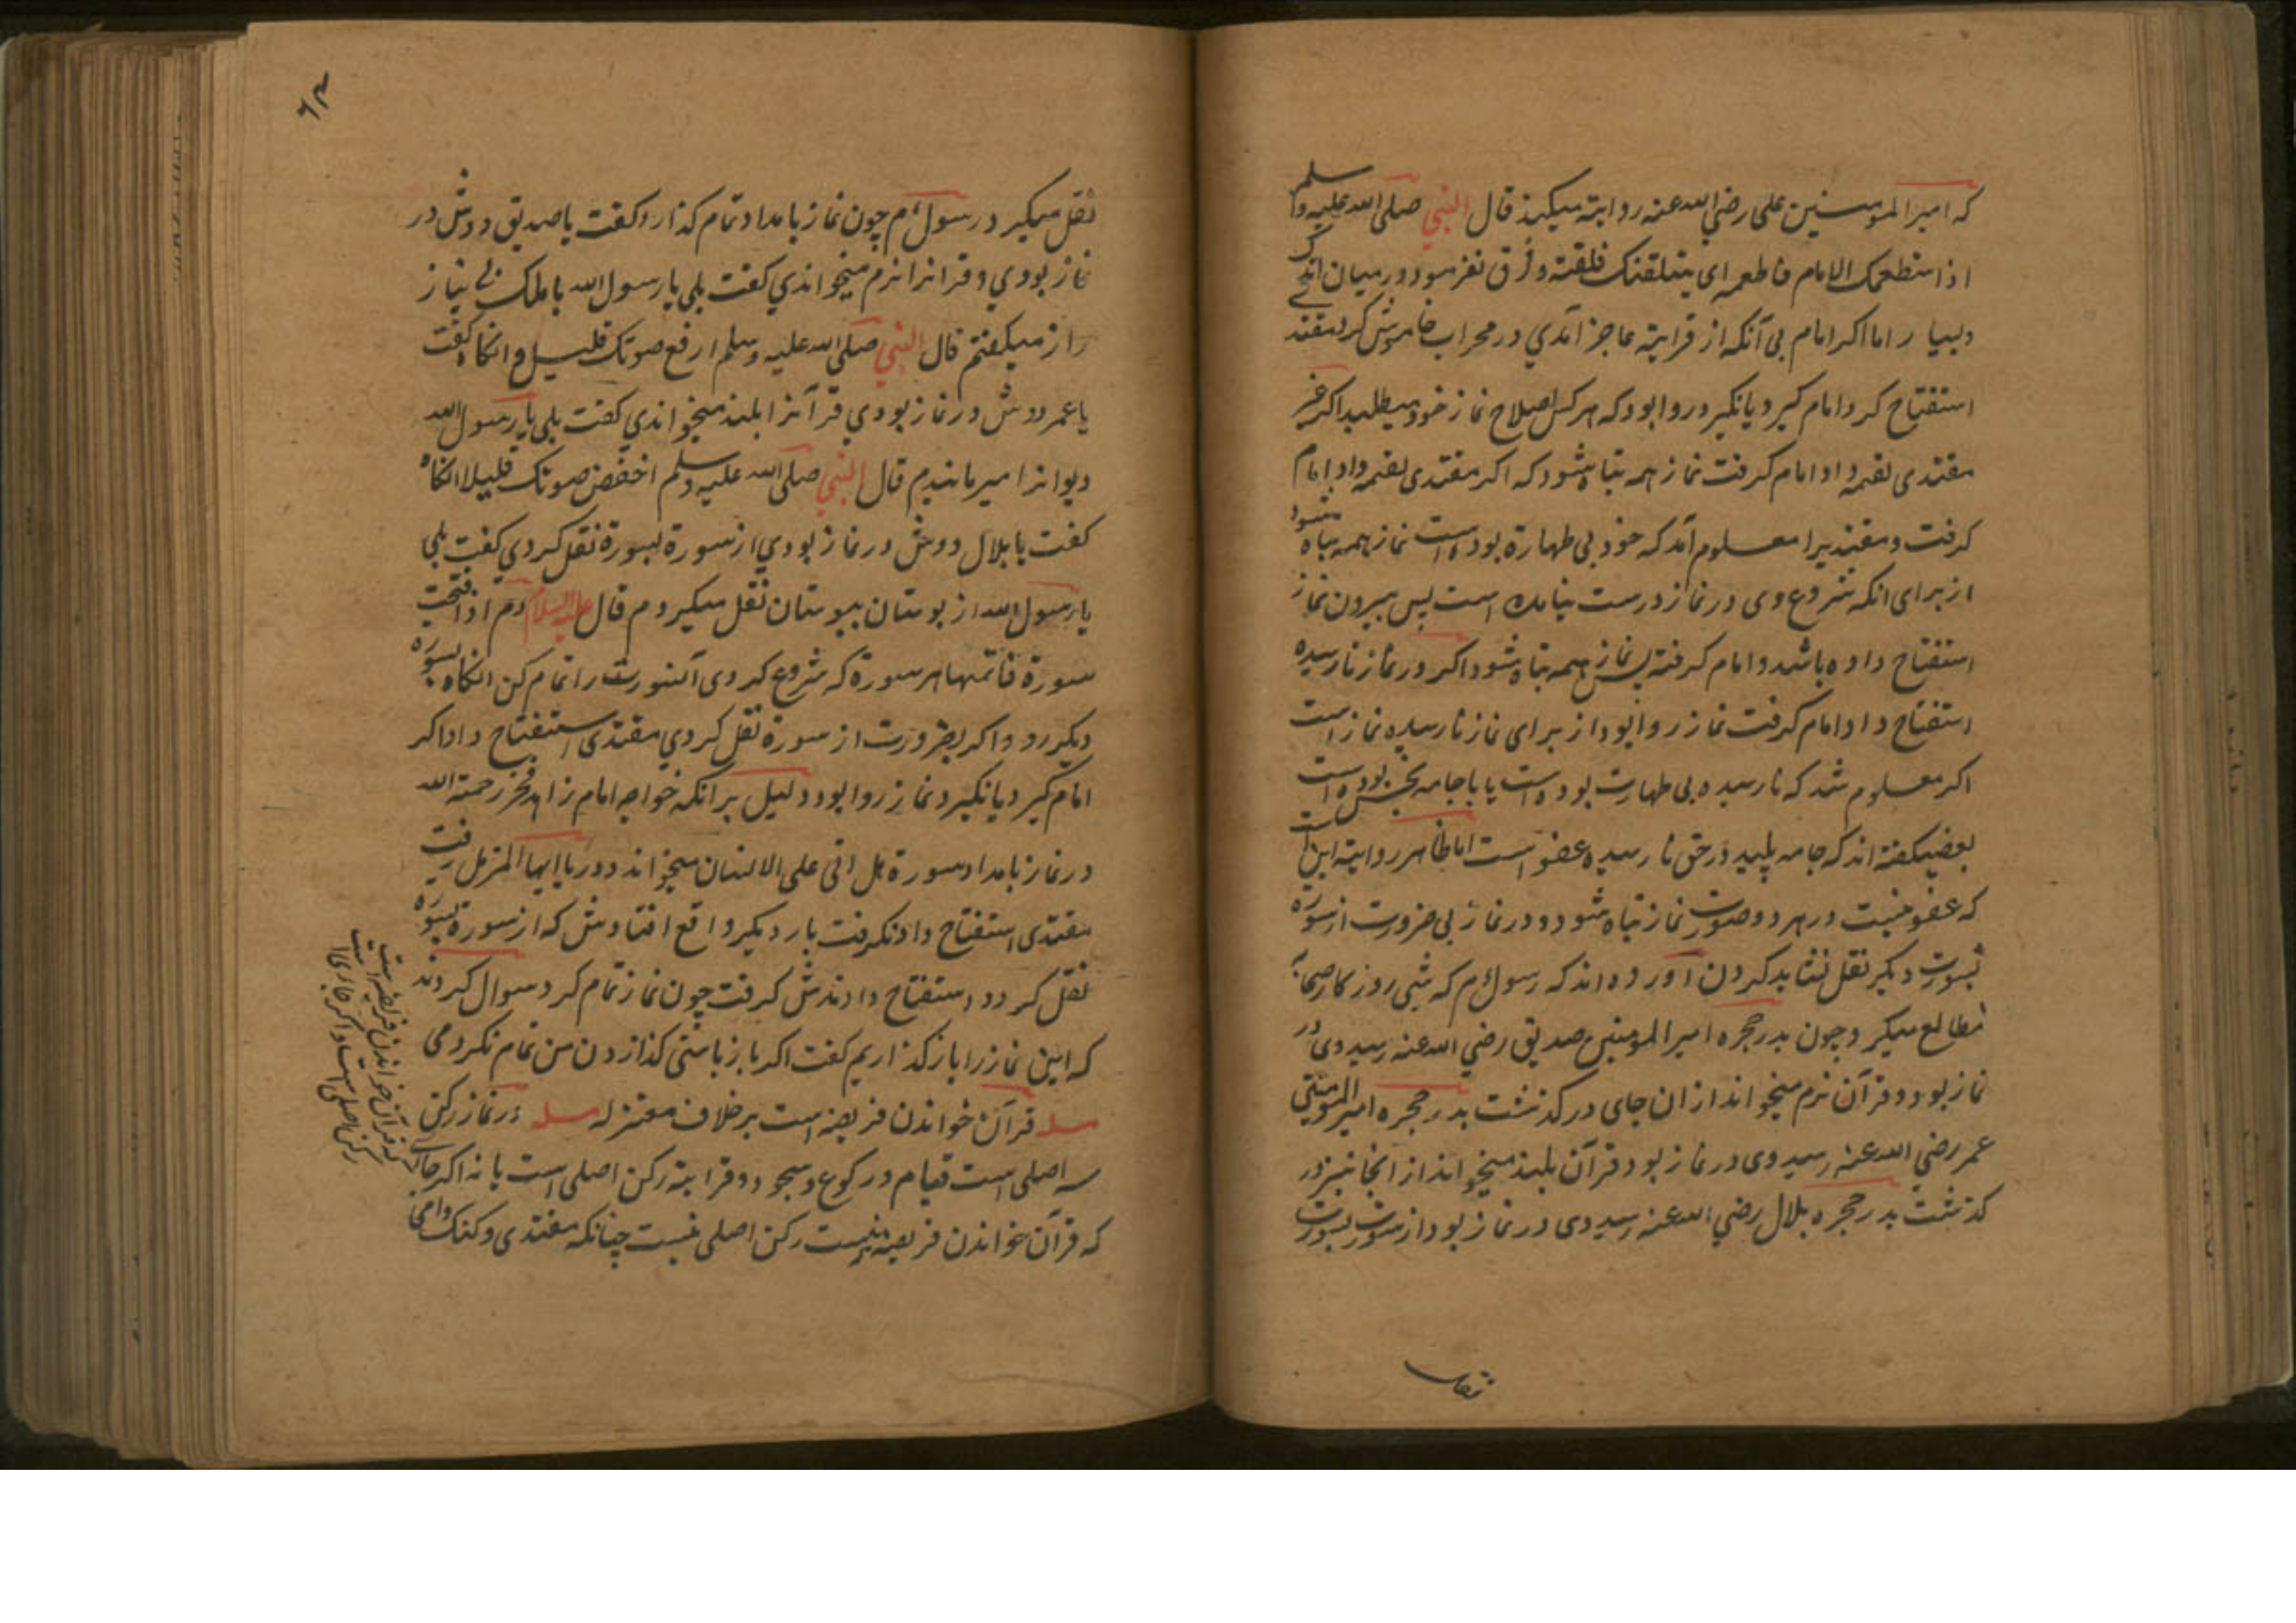 که امیر المومنین علی رضی الله عنه روایته میکند قال النبی صلی الله علیه و سلم
اذا ستطعمک الامام فاطعمه ای یتلقنک فلقنه و فرق نفرمود در میان اندکی
و بسیار اما اکر امام بی آنکه از قرایته عاجز آمدی در محراب خاموش کرد مقتدی
استفتاح کرد امام کیرد یا نکیرد روا بود که هرکس اصلاح نماز خود میطلبد اکر غیر
مقتدی لقمه داد امام کرفت نماز همه تباه شود که اکر مقتدی لقمه داد امام
کرفت و مقتدیرا معلوم آمد که خود بی طهارة بوده است نماز همه تباه شود
از برای انکه شروع وی در نماز درست نیامده است پس بیرون نماز
استفتاح داده باشد و امام کرفته پس نماز همه تباه شود اکر در نماز نارسیده
استفتاح داد امام کرفت نماز روا بود از برای نماز نارسیده نماز است
اکر معلوم شد که نارسیده بی طهارت بوده است یا با جامه نجس بوده است
بعضی کفته اند که جامه پلید در حق نارسیده عفو است اما ظاهر روایته این است
که عفو نیست در هر دو صورت نماز تباه شود و در نماز بی ضرورت از سورة
بسورت دیکر نقل نشاید کردن آورده اند که رسول م که شبی روز کار صحابه
مطالع میکرد چون بدر حجره امیر المومنین صدیق رضی الله عنه رسید وی در
نماز بود و قرآن نرم میخواند از ان جای در کذشت بدر حجره امیر المومنین
عمر رضی الله عنه رسید وی در نماز بود قرآن بلند میخواند از انجا نیز در
کذشت بدر حجره بلال رضی الله عنه رسید وی در نماز بود از سورت بسورت
نقل
۶۳
نقل میکیرد رسول م چون نماز بامداد تمام کذارد کفت یا صدیق دوش در
نماز بودی و قرانرا نرم میخواندی کفت بلی یا رسول الله با ملک بی نیاز
راز میکفتم قال النبی صلی الله علیه وسلم ارفع صوتک قلیلا و انکاه کفت
یا عمر دوش در نماز بودی قرآنرا بلند میخواندی کفت بلی یا رسول الله
دیوانرا میرماندم قال النبی صلی الله علیه وسلم اخفض صوتک قلیلا انکاه
کفت یا بلال دوش در نماز بودی از سورة بسورة نقل کردی کفت بلی
یا رسول الله از بوستان ببوستان نقل میکردم قال علیه السلام اذا افتتحت
سورة فاتمها هر سورة که شروع کردی آنسورت را تمام کن انکاه بسوره
دیکر رو و اکر بضرورت از سورة نقل کردی مقتدی استفتاح داد اکر
امام کیرد یا نکیرد نماز روا بود دلیل بر انکه خواجه امام زاهد فخر رحمة الله
در نماز بامداد سورة هل اتی علی الانسان میخواند و در یا ایها المزمل رفت
مقتدی استفتاح داد نکرفت بار دیکر واقع افتادش که از سورة بسوره
نقل کرد و استفتاح دادندش کرفت چون نماز تمام کرد سوال کردند
که این نماز را باز کذاریم کفت اکر باز بایستی کذاردن من تمام نکردمی
مسله قرآن خواندن فریضه است بر خلاف معتزله مسله در نماز رکن
اصلی است قیام و رکوع و سجود و قرایته رکن اصلی است یا نه اکر جای
که قرآن خواندن فریضه نیست رکن اصلی نیست چنانکه مقتدی و کنک و امی
که قرآن خواندن فریضه است
رکن اصلی است و اکر جای